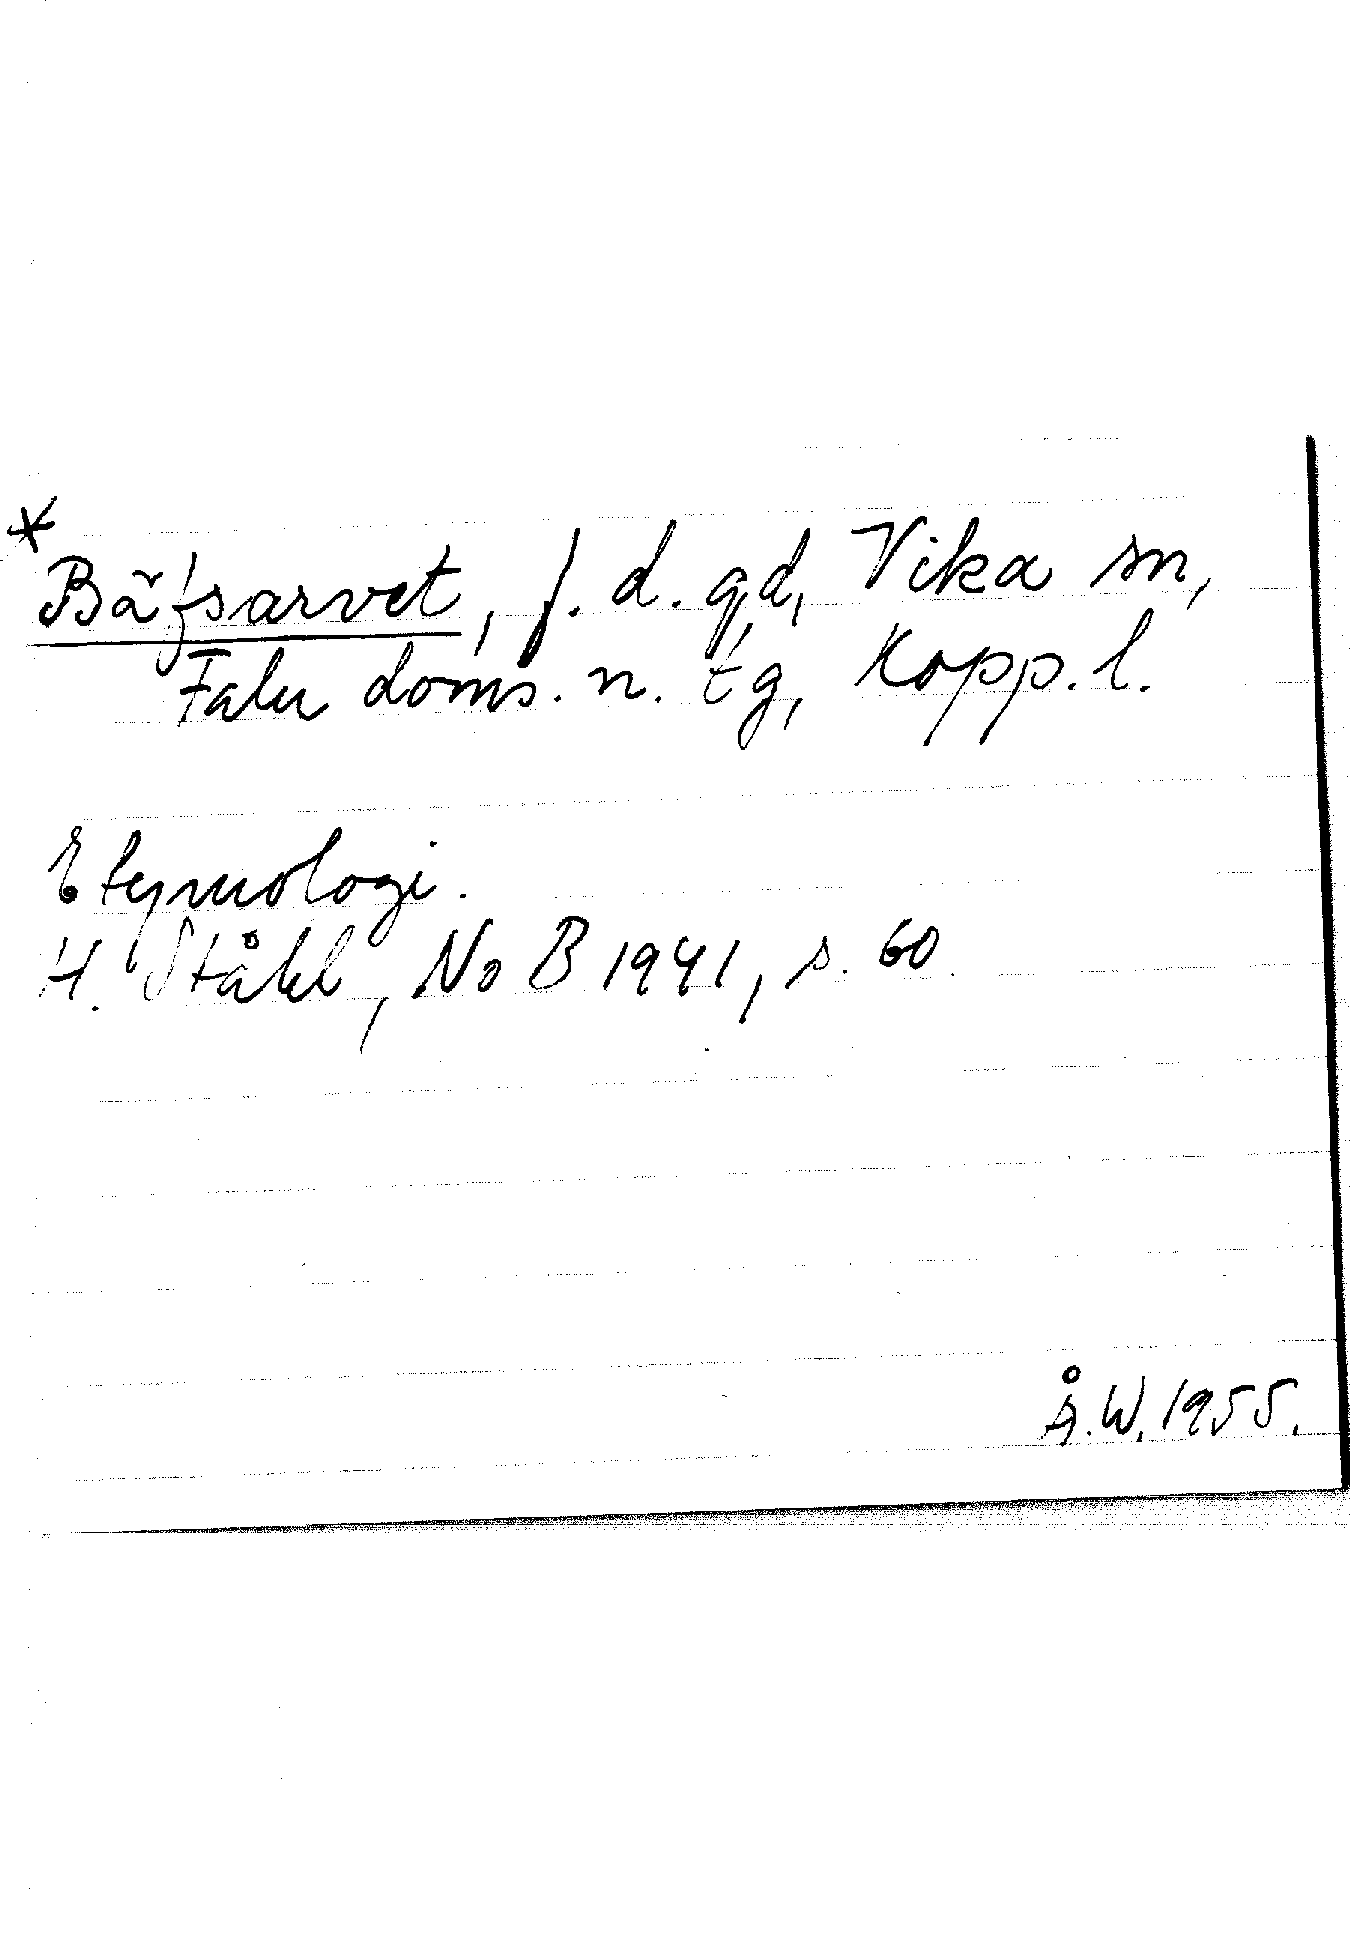 * Bäfsarvet, f. d. gd, Vika sn,
Falu doms. n. tg, Kopp. l.
Etymologi.
H. Ståhl, NoB 1941, s. 60.
Å.W. 1955.